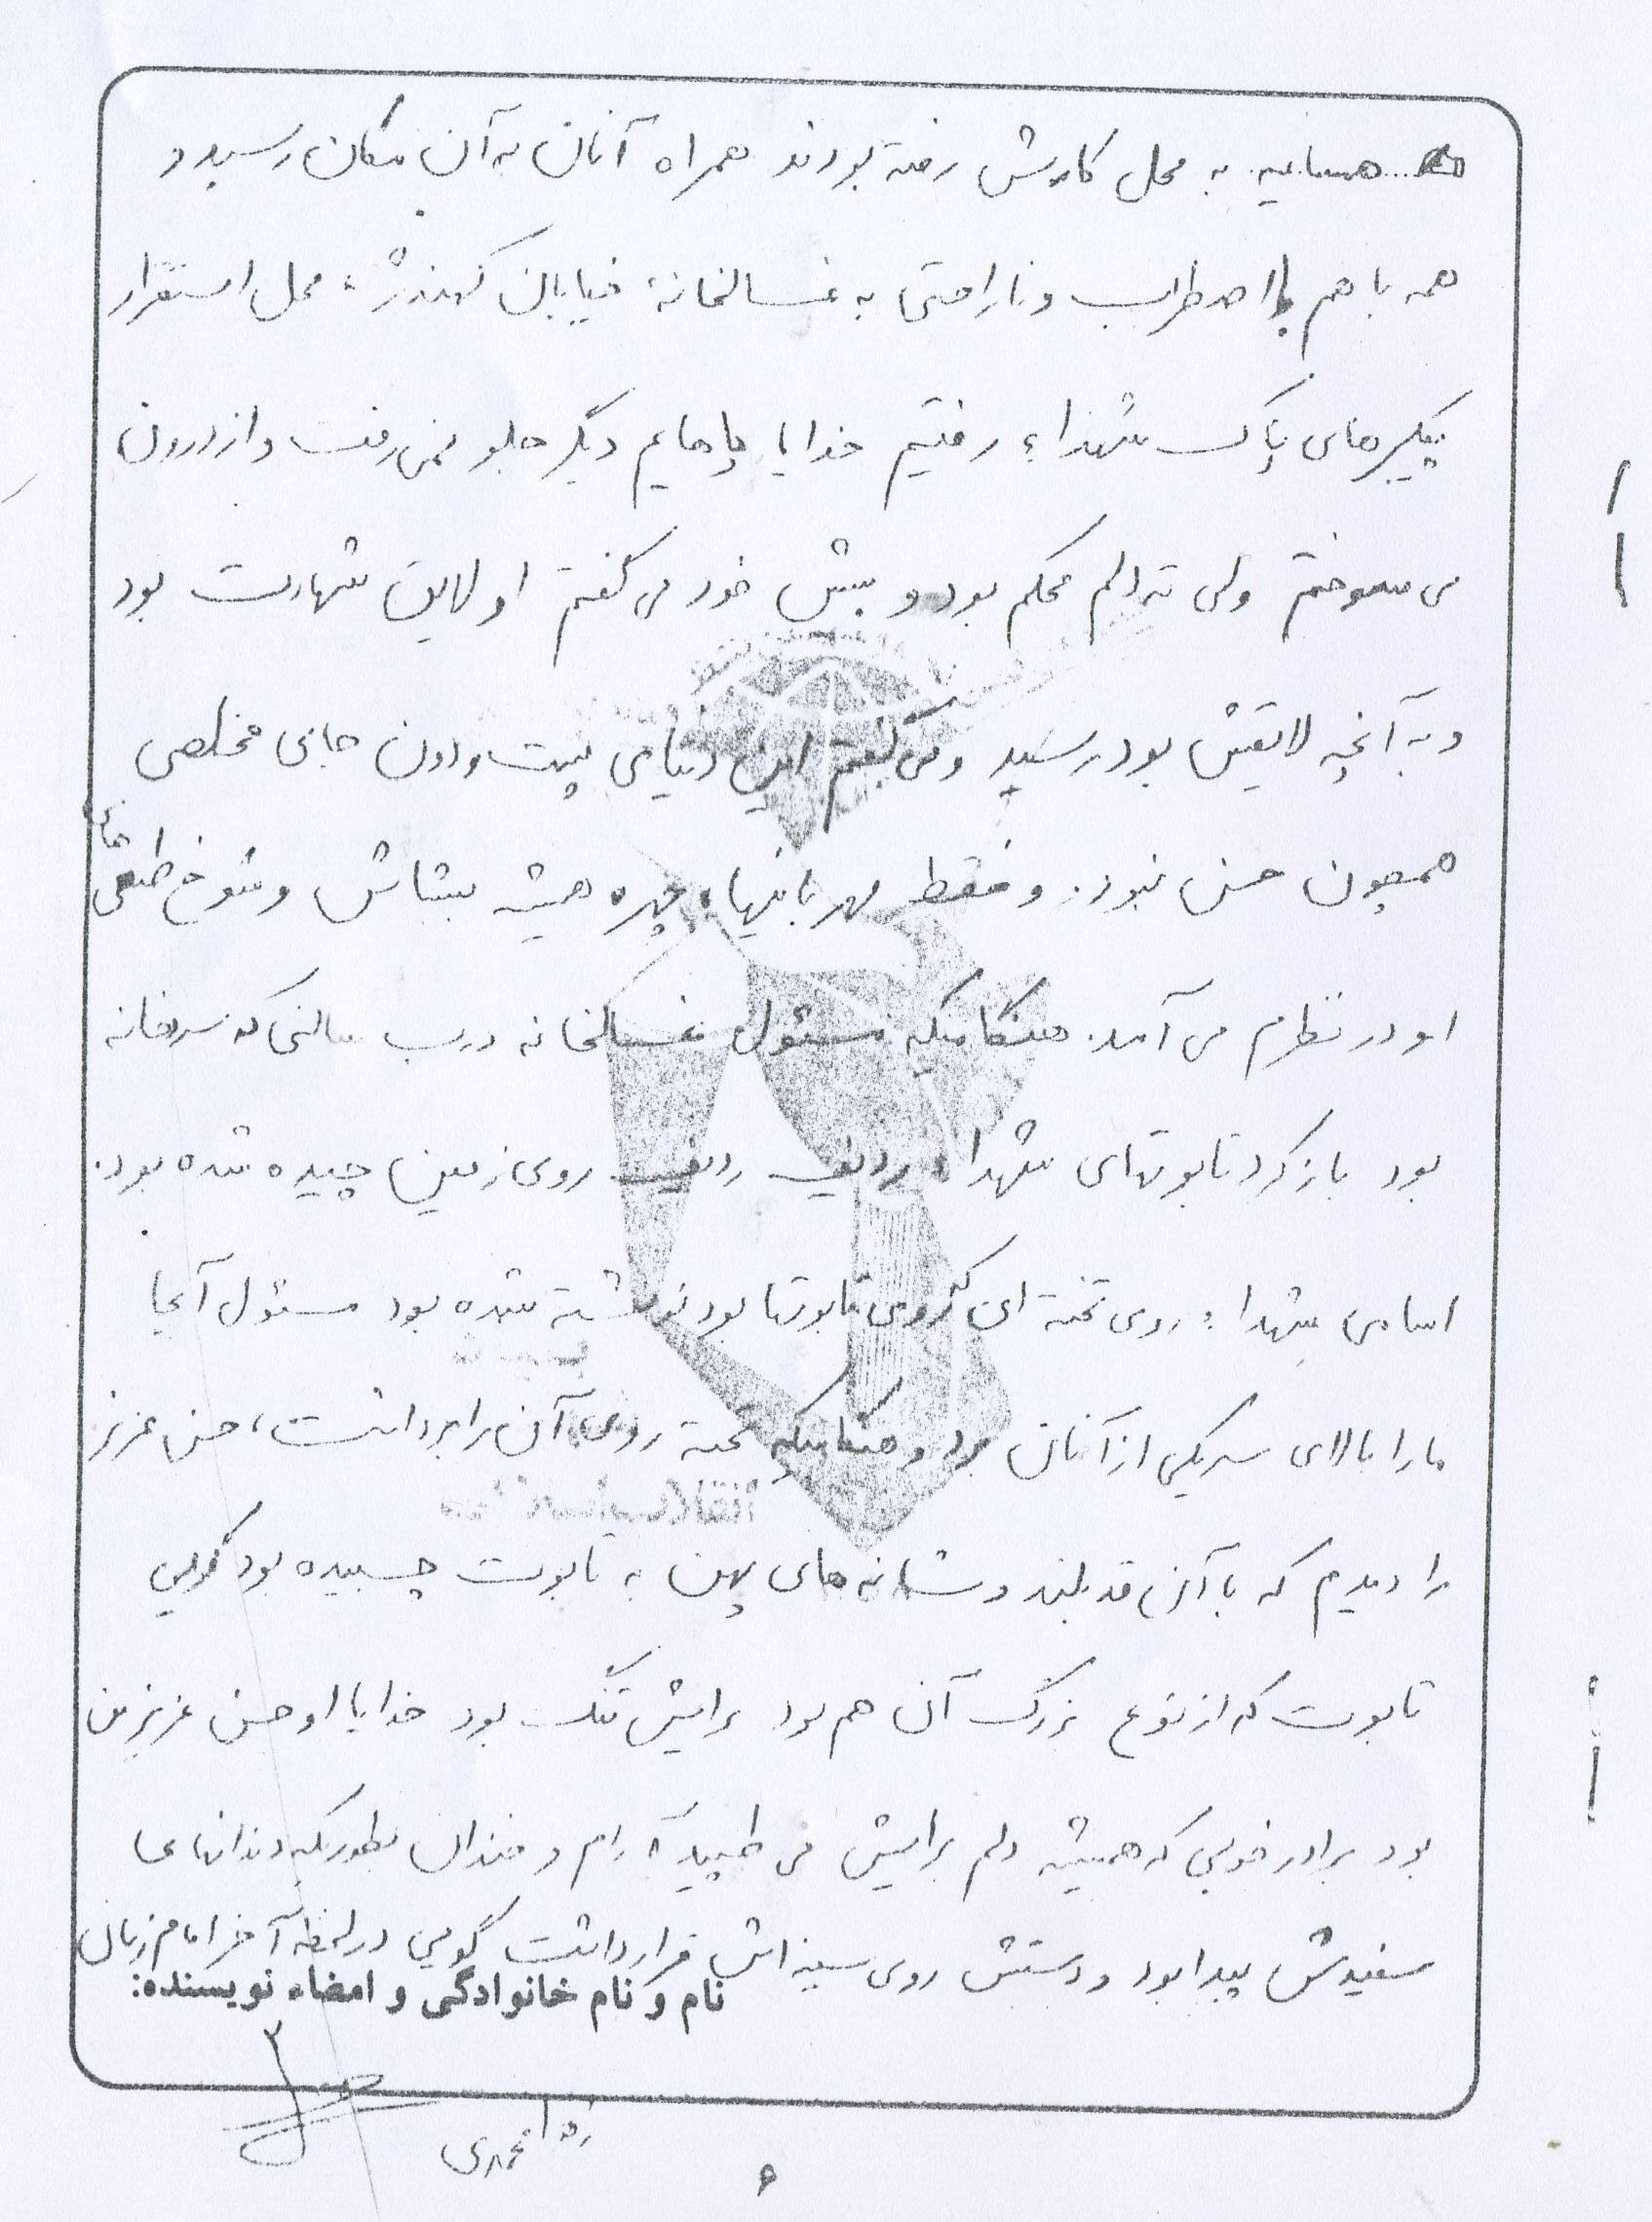 همسایه به محل کارش رفته بودند همراه آنان به آن مکان رسید و
همه با هم با اضطراب و ناراحتی به غسالخانه خیابان کهندژ، محل استقرار
پیکرهای پاک شهداء رفتیم خدایا پاهایم دیگر جلو نمی رفت و از درون
می سوختم ولی ته دلم محکم بود و پیش خود می گفتم او لایق شهادت بود
و به آنچه لایقش بود رسید و می گفتم این دنیای پست و دون جای مخلصی
همچون حسن نبود. و فقط مهربانیها، چهره همیشه بشاش و شوخ طبعی
او در نظرم می آمد. هنگامیکه مسئول غسالخانه درب سالنی که سردخانه
بود باز کرد تابوتهای شهداء ردیف ردیف روی زمین چیده شده بود.
اسامی شهداء روی تخته ای که روی تابوتها بود نوشته شده بود مسئول آنجا
ما را بالای سر یکی از آنان برد و هنگامیکه تخته روی آن را برداشت، حسن عزیز
را دیدم که با آن قد بلند و شانه های پهن به تابوت چسبیده بود گویی
تابوت که از نوع بزرگ آن هم بود برایش تنگ بود خدایا او حسن عزیز من
بود برادر خوبی که همیشه دلم برایش می طپید آرام و خندان بطوریکه دندانهای
سفیدش پیدا بود و دستش روی سینه اش قرار داشت گویی در لحظه آخر امام زمان
نام و نام خانوادگی و امضاء نویسنده:
محمدی
۶